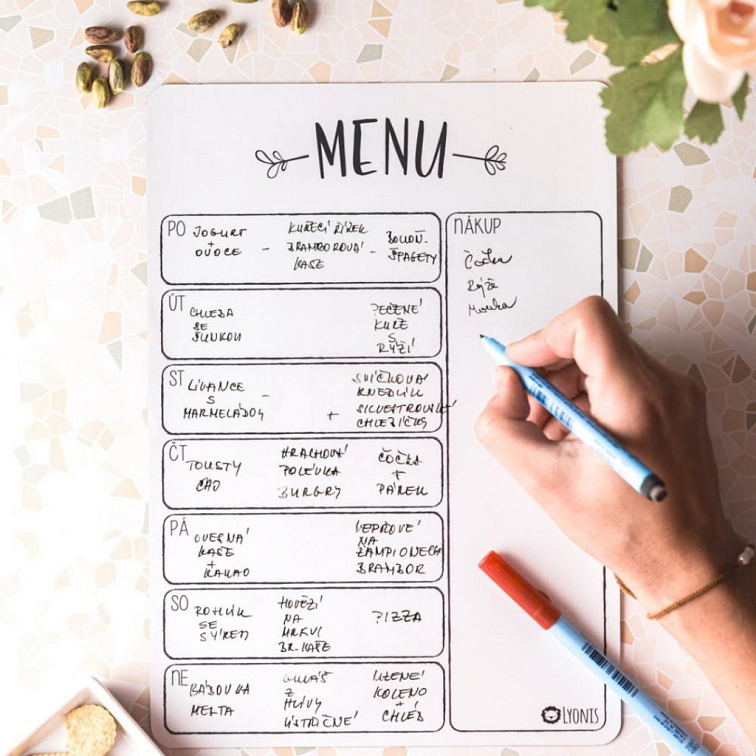 MENU
PO
JOGURT
+
OVOCE
-
KUŘECÍ ŘÍZEK
BRAMBOROVÁ
KAŠE
-
BOLOŇ.
ŠPAGETY
ÚT
CHLEBA
SE
ŠUNKOU
PEČENÉ
KUŘE
S
RÝŽÍ
ST
LÍVANCE
S
MARMELÁDOU
-
+
SVÍČKOVÁ
KNEDLÍK
SILVESTROVSKÉ
CHLEBÍČKY
ČT
TOUSTY
ČAJ
HRACHOVÁ
POLÉVKA
BURGRY
ČOČKA
+
PÁREK
PÁ
OVESNÁ
KAŠE
+
KAKAO
VEPŘOVÉ
NA
ŽAMPIONECH
BRAMBOR
SO
ROHLÍK
SE
SÝREM
HOVĚZÍ
NA
MRKVI
BR. KAŠE
PIZZA
NE
BÁBOVKA
MELTA
GULÁŠ
Z
HLÍVY
ÚSTŘIČNÉ
UZENÉ
KOLENO
+
CHLÉB
NÁKUP
Čočka
Rýže
Mouka
LYONIS